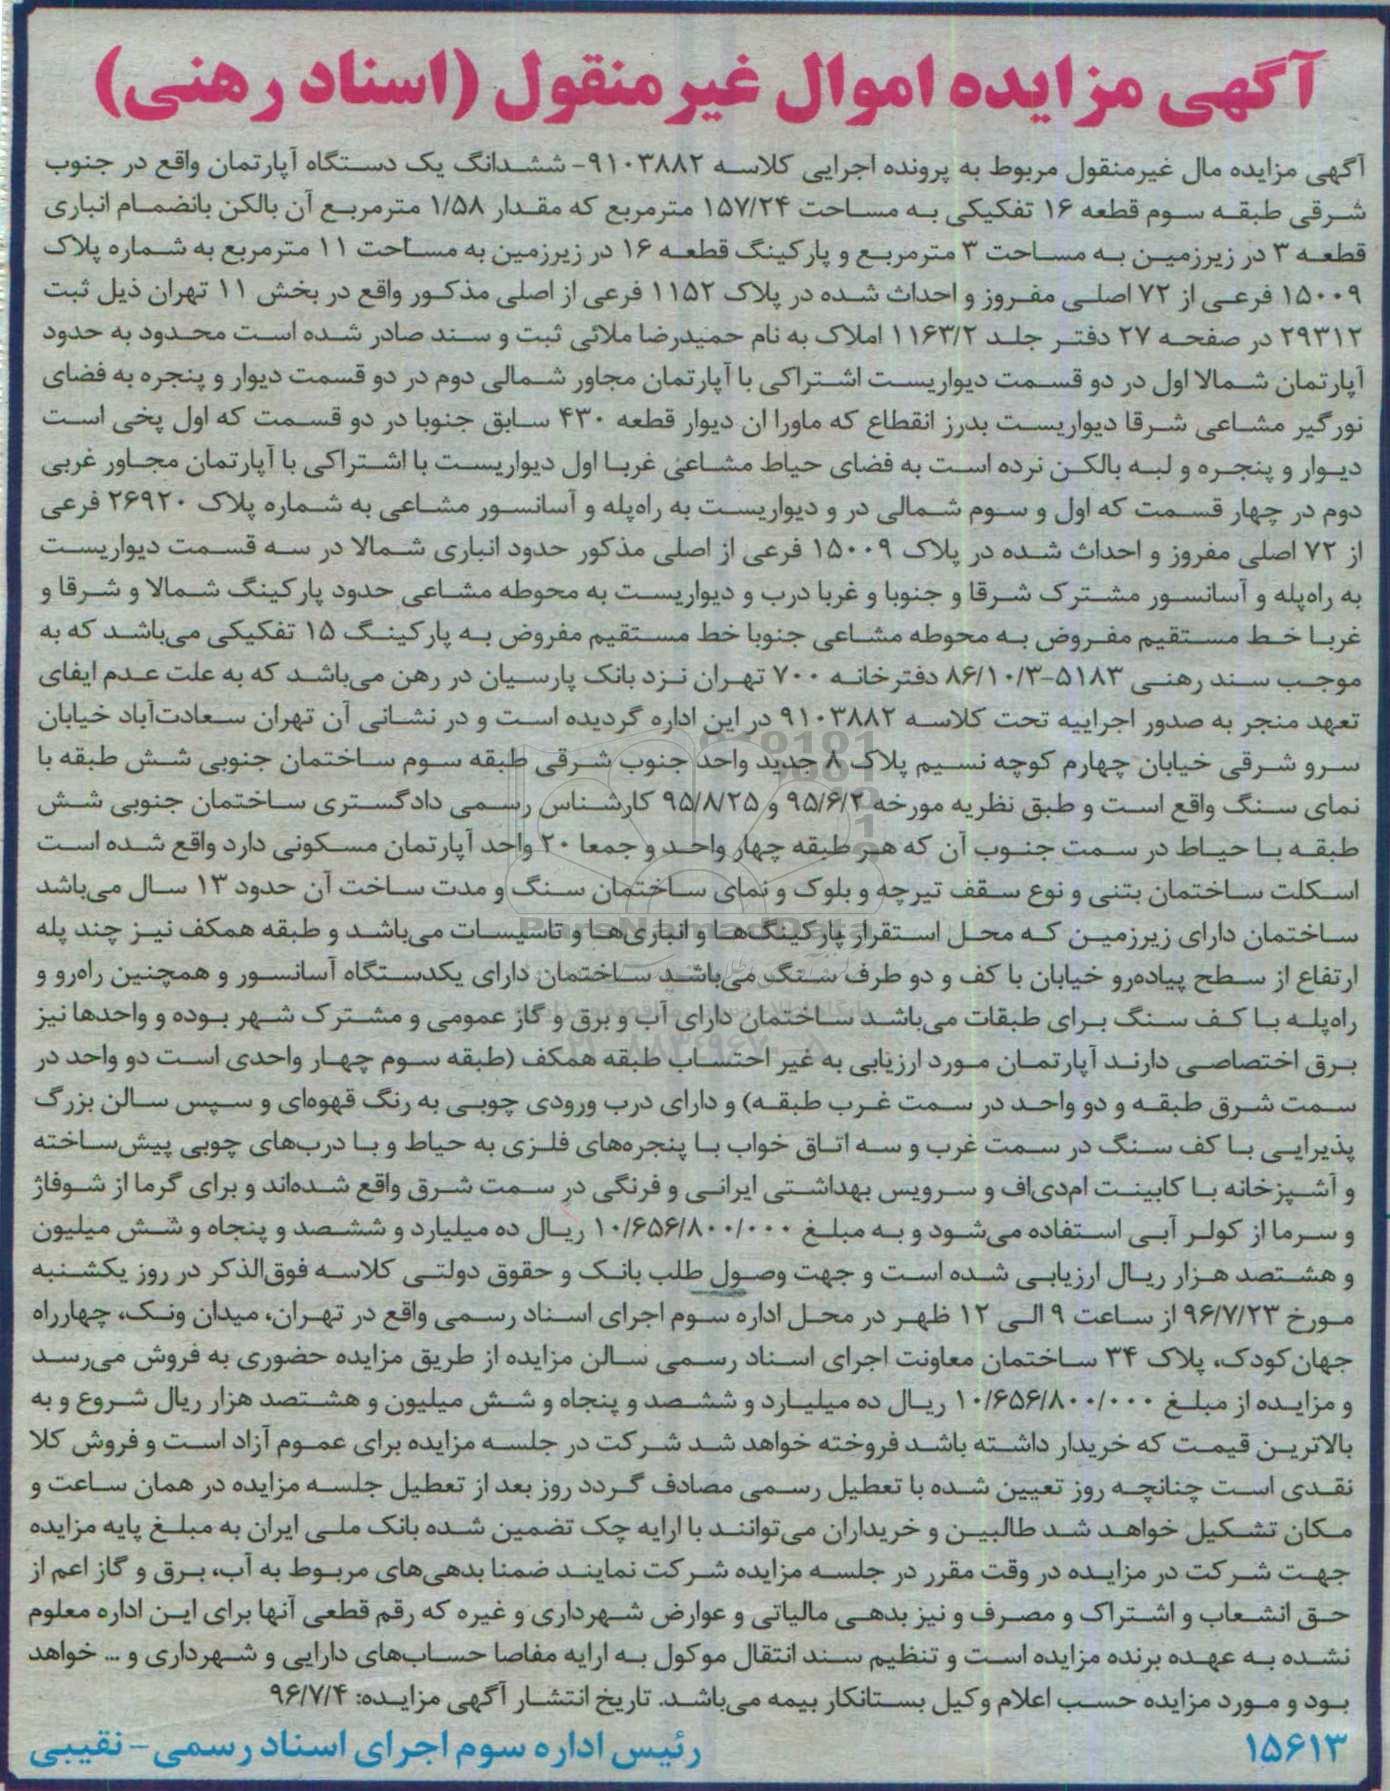 آگهی مزایده اموال غیرمنقول (اسناد رهنی)
آگهی مزایده مال غیرمنقول مربوط به پرونده اجرایی کلاسه ۹۱۰۳۸۸۲- ششدانگ یک دستگاه آپارتمان واقع در جنوب
شرقی طبقه سوم قطعه ۱۶ تفکیکی به مساحت ۱۵۷/۲۴ مترمربع که مقدار ۱/۵۸ مترمربع آن بالکن بانضمام انباری
قطعه ۳ در زیرزمین به مساحت ۳ مترمربع و پارکینگ قطعه ۱۶ در زیرزمین به مساحت ۱۱ مترمربع به شماره پلاک
۱۵۰۰۹ فرعی از ۷۲ اصلی مفروز و احداث شده در پلاک ۱۱۵۲ فرعی از اصلی مذکور واقع در بخش ۱۱ تهران ذیل ثبت
۲۹۳۱۲ در صفحه ۲۷ دفتر جلد ۱۱۶۳/۲ املاک به نام حمیدرضا ملائی ثبت و سند صادر شده است محدود به حدود
آپارتمان شمالا اول در دو قسمت دیواریست اشتراکی با آپارتمان مجاور شمالی دوم در دو قسمت دیوار و پنجره به فضای
نورگیر مشاعی شرقا دیواریست بدرز انقطاع که ماورا ان دیوار قطعه ۴۳۰ سابق جنوبا در دو قسمت که اول پخی است
دیوار و پنجره و لبه بالکن نرده است به فضای حیاط مشاعی غربا اول دیواریست با اشتراکی با آپارتمان مجاور غربی
دوم در چهار قسمت که اول و سوم شمالی در و دیواریست به راه‌پله و آسانسور مشاعی به شماره پلاک ۲۶۹۲۰ فرعی
از ۷۲ اصلی مفروز و احداث شده در پلاک ۱۵۰۰۹ فرعی از اصلی مذکور حدود انباری شمالا در سه قسمت دیواریست
به راه‌پله و آسانسور مشترک شرقا و جنوبا و غربا درب و دیواریست به محوطه مشاعی حدود پارکینگ شمالا و شرقا و
غربا خط مستقیم مفروض به محوطه مشاعی جنوبا خط مستقیم مفروض به پارکینگ ۱۵ تفکیکی می‌باشد که به
موجب سند رهنی ۵۱۸۳-۸۶/۱۰/۳ دفترخانه ۷۰۰ تهران نزد بانک پارسیان در رهن می‌باشد که به علت عدم ایفای
تعهد منجر به صدور اجراییه تحت کلاسه ۹۱۰۳۸۸۲ در این اداره گردیده است و در نشانی آن تهران سعادت‌آباد خیابان
سرو شرقی خیابان چهارم کوچه نسیم پلاک ۸ جدید واحد جنوب شرقی طبقه سوم ساختمان جنوبی شش طبقه با
نمای سنگ واقع است و طبق نظریه مورخه ۹۵/۶/۲ و ۹۵/۸/۲۵ کارشناس رسمی دادگستری ساختمان جنوبی شش
طبقه با حیاط در سمت جنوب آن که هر طبقه چهار واحد و جمعا ۲۰ واحد آپارتمان مسکونی دارد واقع شده است
اسکلت ساختمان بتنی و نوع سقف تیرچه و بلوک و نمای ساختمان سنگ و مدت ساخت آن حدود ۱۳ سال می‌باشد
ساختمان دارای زیرزمین که محل استقرار پارکینگ‌ها و انباری‌ها و تاسیسات می‌باشد و طبقه همکف نیز چند پله
ارتفاع از سطح پیاده‌رو خیابان با کف و دو طرف سنگ می‌باشد ساختمان دارای یکدستگاه آسانسور و همچنین راه‌رو و
راه‌پله با کف سنگ برای طبقات می‌باشد ساختمان دارای آب و برق و گاز عمومی و مشترک شهر بوده و واحدها نیز
برق اختصاصی دارند آپارتمان مورد ارزیابی به غیر احتساب طبقه همکف (طبقه سوم چهار واحدی است دو واحد در
سمت شرق طبقه و دو واحد در سمت غرب طبقه) و دارای درب ورودی چوبی به رنگ قهوه‌ای و سپس سالن بزرگ
پذیرایی با کف سنگ در سمت غرب و سه اتاق خواب با پنجره‌های فلزی به حیاط و با درب‌های چوبی پیش‌ساخته
و آشپزخانه با کابینت ام‌دی‌اف و سرویس بهداشتی ایرانی و فرنگی در سمت شرق واقع شده‌اند و برای گرما از شوفاژ
و سرما از کولر آبی استفاده می‌شود و به مبلغ ۱۰/۶۵۶/۸۰۰/۰۰۰ ریال ده میلیارد و ششصد و پنجاه و شش میلیون
و هشتصد هزار ریال ارزیابی شده است و جهت وصول طلب بانک و حقوق دولتی کلاسه فوق‌الذکر در روز یکشنبه
مورخ ۹۶/۷/۲۳ از ساعت ۹ الی ۱۲ ظهر در محل اداره سوم اجرای اسناد رسمی واقع در تهران، میدان ونک، چهارراه
جهان‌کودک، پلاک ۳۴ ساختمان معاونت اجرای اسناد رسمی سالن مزایده از طریق مزایده حضوری به فروش می‌رسد
و مزایده از مبلغ ۱۰/۶۵۶/۸۰۰/۰۰۰ ریال ده میلیارد و ششصد و پنجاه و شش میلیون و هشتصد هزار ریال شروع و به
بالاترین قیمت که خریدار داشته باشد فروخته خواهد شد شرکت در جلسه مزایده برای عموم آزاد است و فروش کلا
نقدی است چنانچه روز تعیین شده با تعطیل رسمی مصادف گردد روز بعد از تعطیل جلسه مزایده در همان ساعت و
مکان تشکیل خواهد شد طالبین و خریداران می‌توانند با ارایه چک تضمین شده بانک ملی ایران به مبلغ پایه مزایده
جهت شرکت در مزایده در وقت مقرر در جلسه مزایده شرکت نمایند ضمنا بدهی‌های مربوط به آب، برق و گاز اعم از
حق انشعاب و اشتراک و مصرف و نیز بدهی مالیاتی و عوارض شهرداری و غیره که رقم قطعی آنها برای این اداره معلوم
نشده به عهده برنده مزایده است و تنظیم سند انتقال موکول به ارایه مفاصا حساب‌های دارایی و شهرداری و ... خواهد
بود و مورد مزایده حسب اعلام وکیل بستانکار بیمه می‌باشد. تاریخ انتشار آگهی مزایده: ۹۶/۷/۴
۱۵۶۱۳
رئیس اداره سوم اجرای اسناد رسمی - نقیبی